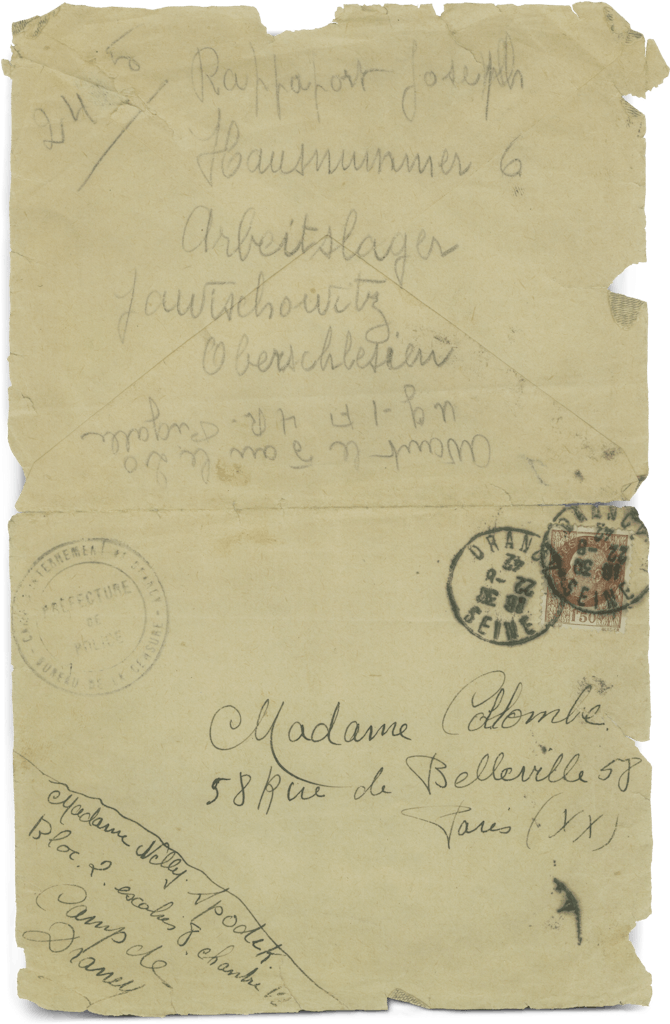 24
Rappaport Joseph
Hausnummer 6
Arbeitslager
Jawischowitz
Oberschlesien
Avant le 5 au le 20
CAMP D'INTERNEMENT DE DRANCY
PREFECTURE
DE
POLICE
BUREAU DE LA CENSURE
DRANCY
18 30
22 -8
42
SEINE
DRANCY
18 30
22 -8
42
SEINE
1F50
Madame Colombe
58 Rue de Belleville 58
Paris (XX)
Madame Nelly Spodek.
Bloc. 2. escalier 8. chambre
Camp de
Drancy